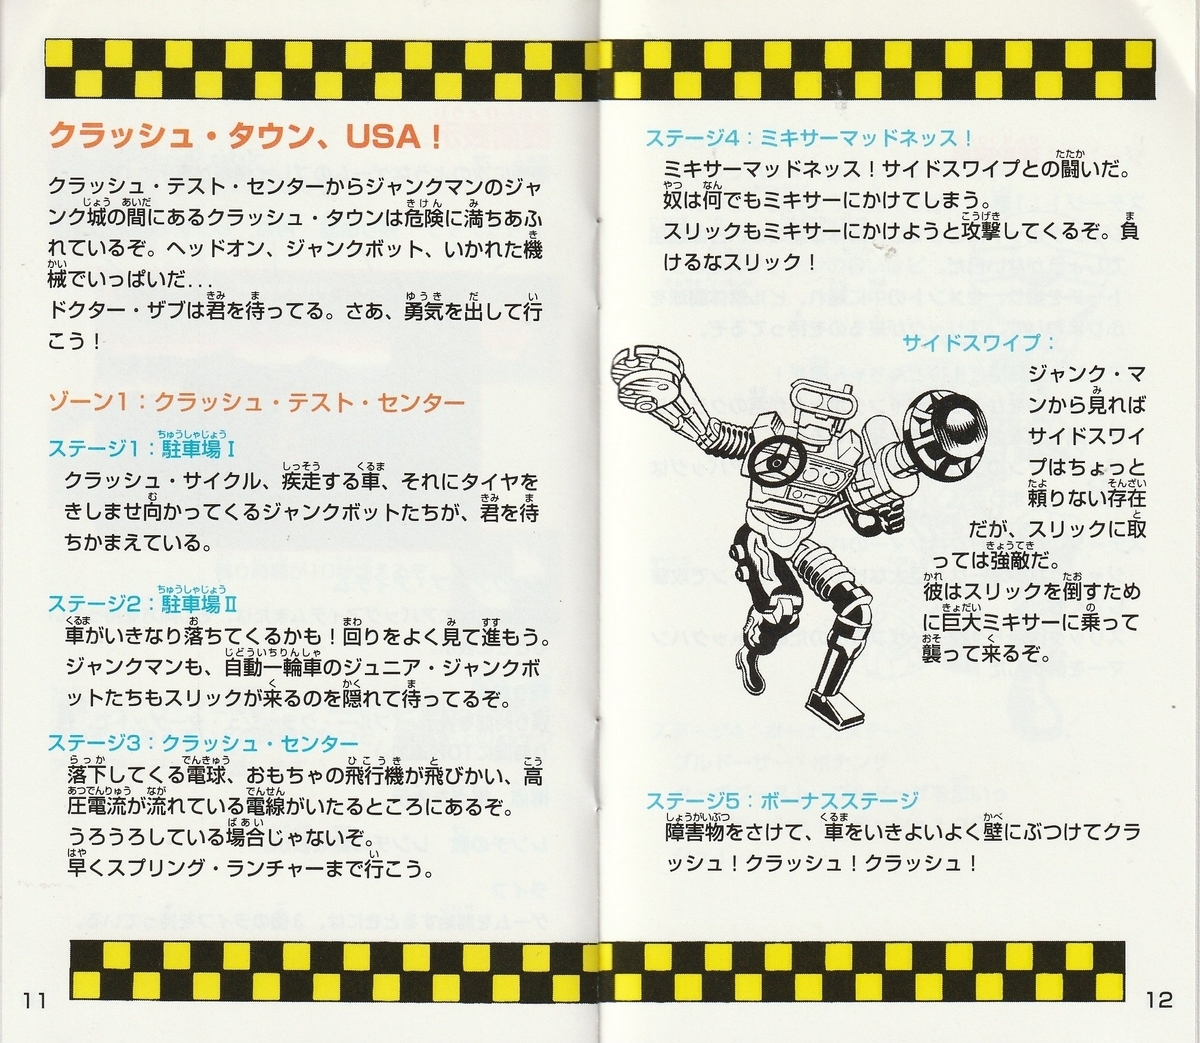 クラッシュ・タウン、USA！
クラッシュ・テスト・センターからジャンクマンのジャ
ンク城の間にあるクラッシュ・タウンは危険に満ちあふ
れているぞ。ヘッドオン、ジャンクボット、いかれた機
械でいっぱいだ...
ドクター・ザブは君を待ってる。さあ、勇気を出して行
こう！
ゾーン1：クラッシュ・テスト・センター
ステージ1：駐車場Ⅰ
クラッシュ・サイクル、疾走する車、それにタイヤを
きしませ向かってくるジャンクボットたちが、君を待
ちかまえている。
ステージ2：駐車場Ⅱ
車がいきなり落ちてくるかも！回りをよく見て進もう。
ジャンクマンも、自動一輪車のジュニア・ジャンクボ
ットたちもスリックが来るのを隠れて待ってるぞ。
ステージ3：クラッシュ・センター
落下してくる電球、おもちゃの飛行機が飛びかい、高
圧電流が流れている電線がいたるところにあるぞ。
うろうろしている場合じゃないぞ。
早くスプリング・ランチャーまで行こう。
11
ステージ4：ミキサーマッドネッス！
ミキサーマッドネッス！サイドスワイプとの闘いだ。
奴は何でもミキサーにかけてしまう。
スリックもミキサーにかけようと攻撃してくるぞ。負
けるなスリック！
サイドスワイプ：
ジャンク・マ
ンから見れば
サイドスワイ
プはちょっと
頼りない存在
だが、スリックに取
っては強敵だ。
彼はスリックを倒すため
に巨大ミキサーに乗って
襲って来るぞ。
ステージ5：ボーナスステージ
障害物をさけて、車をいきよいよく壁にぶつけてクラ
ッシュ！クラッシュ！クラッシュ！
12